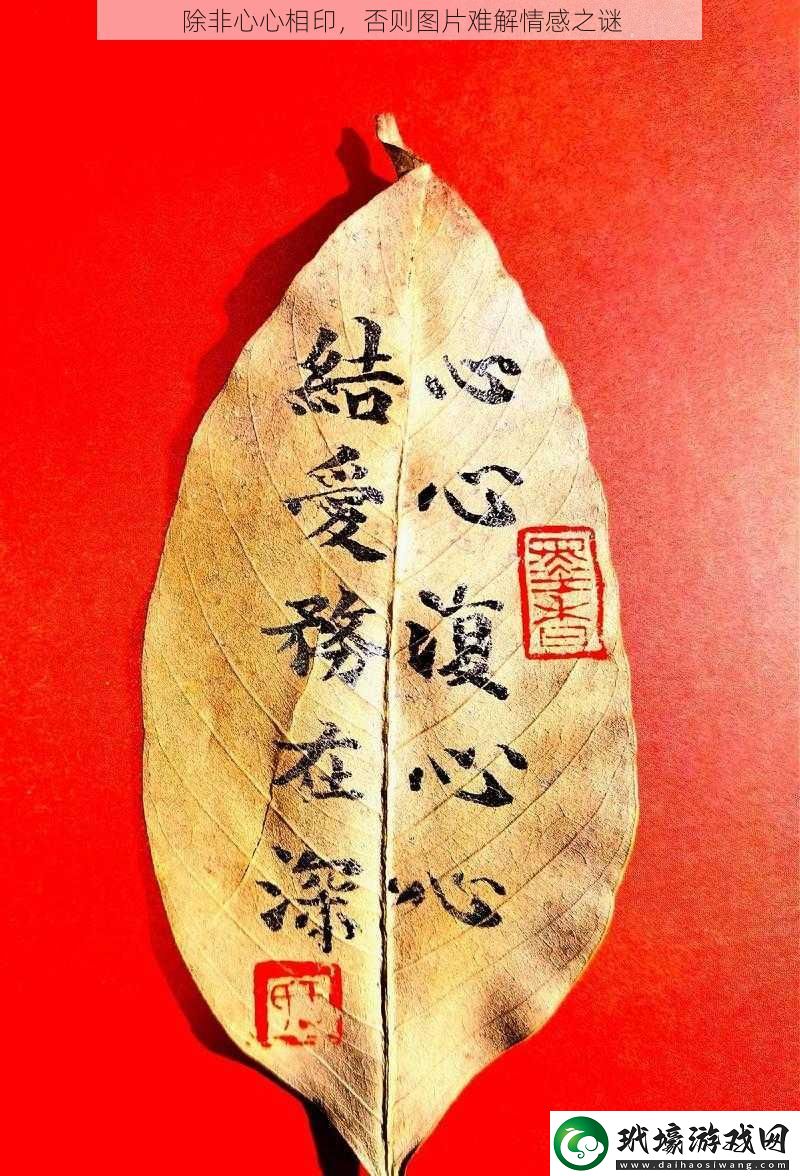 除非心心相印，否则图片难解情感之谜
心心復心心
結愛務在深
玳壕游戏网
www.daihaosiwang.com